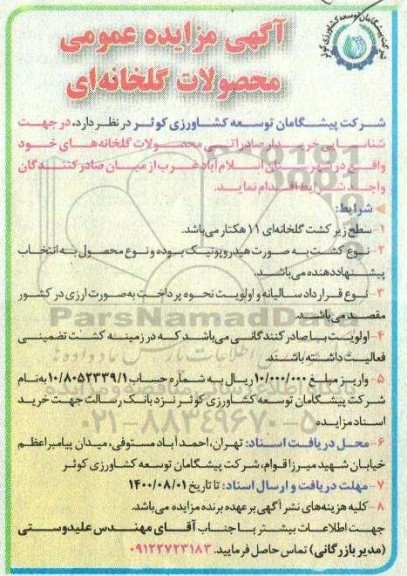 آگهی مزایده عمومی
محصولات گلخانه‌ای
شرکت پیشگامان توسعه کشاورزی کوثر در نظر دارد، در جهت
شناسایی خریدار صادراتی محصولات گلخانه‌های خود
واقع در شهرستان اسلام‌آباد غرب از میان صادرکنندگان
واجد شرایط اقدام نماید.
شرایط:
۱- سطح زیر کشت گلخانه‌ای ۱۱ هکتار می‌باشد.
۲- نوع کشت به صورت هیدروپونیک بوده و نوع محصول به انتخاب
پیشنهاددهنده می‌باشد.
۳- نوع قرارداد سالیانه و اولویت نحوه پرداخت به‌صورت ارزی در کشور
مقصد می‌باشد.
۴- اولویت با صادرکنندگانی می‌باشد که در زمینه کشت تضمینی
فعالیت داشته باشند.
۵- واریز مبلغ ۱۰/۰۰۰/۰۰۰ ریال به شماره حساب ۱۰/۸۰۵۲۳۳۹/۱ به‌نام
شرکت پیشگامان توسعه کشاورزی کوثر نزد بانک رسالت جهت خرید
اسناد مزایده
۶- محل دریافت اسناد: تهران، احمدآباد مستوفی، میدان پیامبراعظم
خیابان شهید میرزا قوام، شرکت پیشگامان توسعه کشاورزی کوثر
۷- مهلت دریافت و ارسال اسناد: تا تاریخ ۱۴۰۰/۰۸/۰۱
۸- کلیه هزینه‌های نشر آگهی بر عهده برنده مزایده می‌باشد.
جهت اطلاعات بیشتر با جناب آقای مهندس علیدوستی
(مدیر بازرگانی) تماس حاصل فرمایید. ۰۹۱۲۲۷۲۳۱۸۳
ParsNamadData
۰۲۱-۸۸۳۴۹۶۷۰-۵